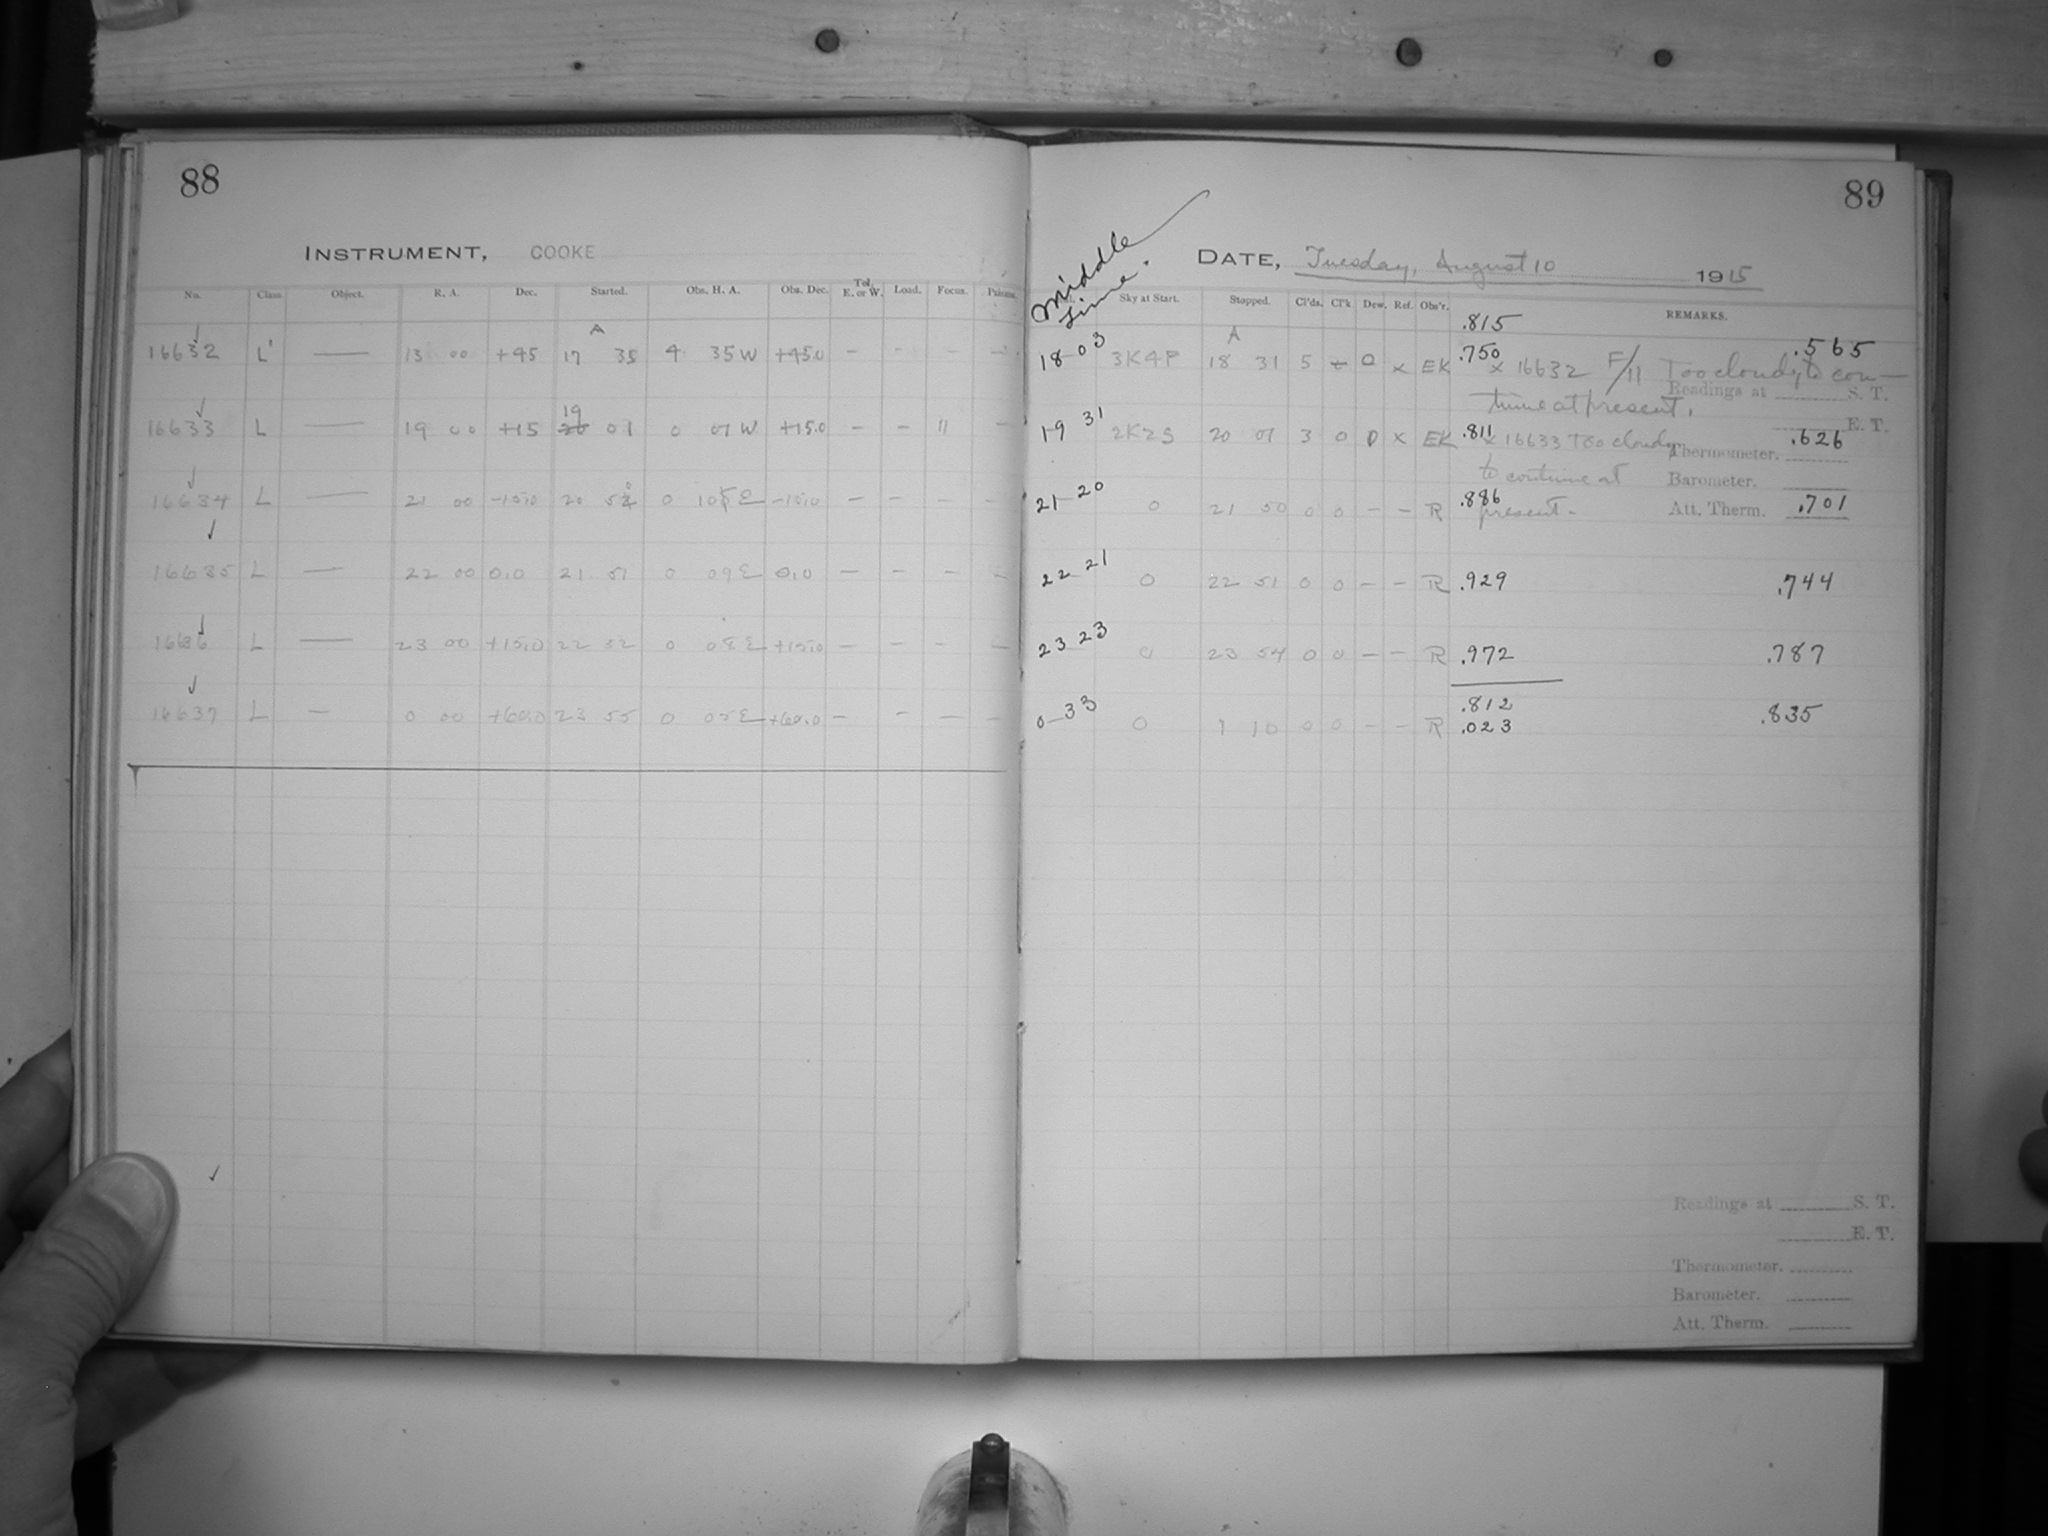 88
INSTRUMENT, COOKE
No. Class. Object. R. A. Dec. Started. Obs. H. A. Obs. Dec. Tel. E. or W. Load. Focus.
A
16632 L — 13 00 +45 17 35 4 35 W +45.0 - - - -
19
16633 L — 19 00 +15 20 01 0 01 W +15.0 - - 11 -
16634 L — 21 00 -15.0 20 0 E -15.0 - - - -
16635 L — 22 00 0.0 21 51 0 09 E 0.0 - - - -
16636 L — 23 00 +15.0 22 52 0 08 E +15.0 - - - -
16637 L — 0 00 +60.0 23 55 0 05 E +60.0 - - -
89
Middle
time.
DATE, Tuesday, August 10 1915
Sky at Start. Stopped. Cl'ds. Cl'k Dew. Ref. Obs'r. REMARKS.
.815
A
18-03 3K4P 18 31 5 0 x EK .750 x 16632 F/11 Too cloudy to con- .565
Readings at S. T.
tinue at present.
E. T.
19 31 2K2S 20 01 3 0 0 x EK .811 x 16633 Too cloudy .626
Thermometer.
to continue at
Barometer.
21-20 0 21 50 0 0 - - R .886 present. Att. Therm. .701
22 21 0 22 51 0 0 - - R .929 .744
23 23 0 23 54 0 0 - - R .972 .787
.812
0-33 0 1 10 0 0 - - R .023 .835
Readings at S. T.
E. T.
Thermometer.
Barometer.
Att. Therm.